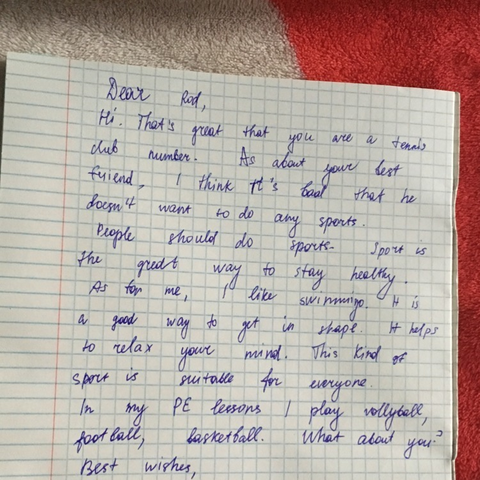 Dear Rod,
Hi. That's great that you are a tennis
club number. As about your best
friend, I think it's bad that he
doesn't want to do any sports.
People should do sports. Sport is
the great way to stay healthy.
As for me, I like swimming. It is
a good way to get in shape. It helps
to relax your mind. This kind of
sport is suitable for everyone.
In my PE lessons I play vollyball,
football, basketball. What about you?
Best wishes,